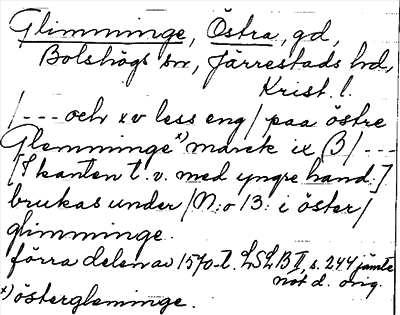 Glimminge, Östra, gd,
Bolshögs sn, Järrestads hd,
Krist. l.
/--- och xv less eng/ paa östre
Glemminge x) marck ix (3/ ---
[I kanten t. v. med yngre hand:]
brukas under /N:o 13: i öster/
glimminge.
förra delen av 1570-t. LSLB II, s. 244 jämte
not d. orig.
x) östergleminge.